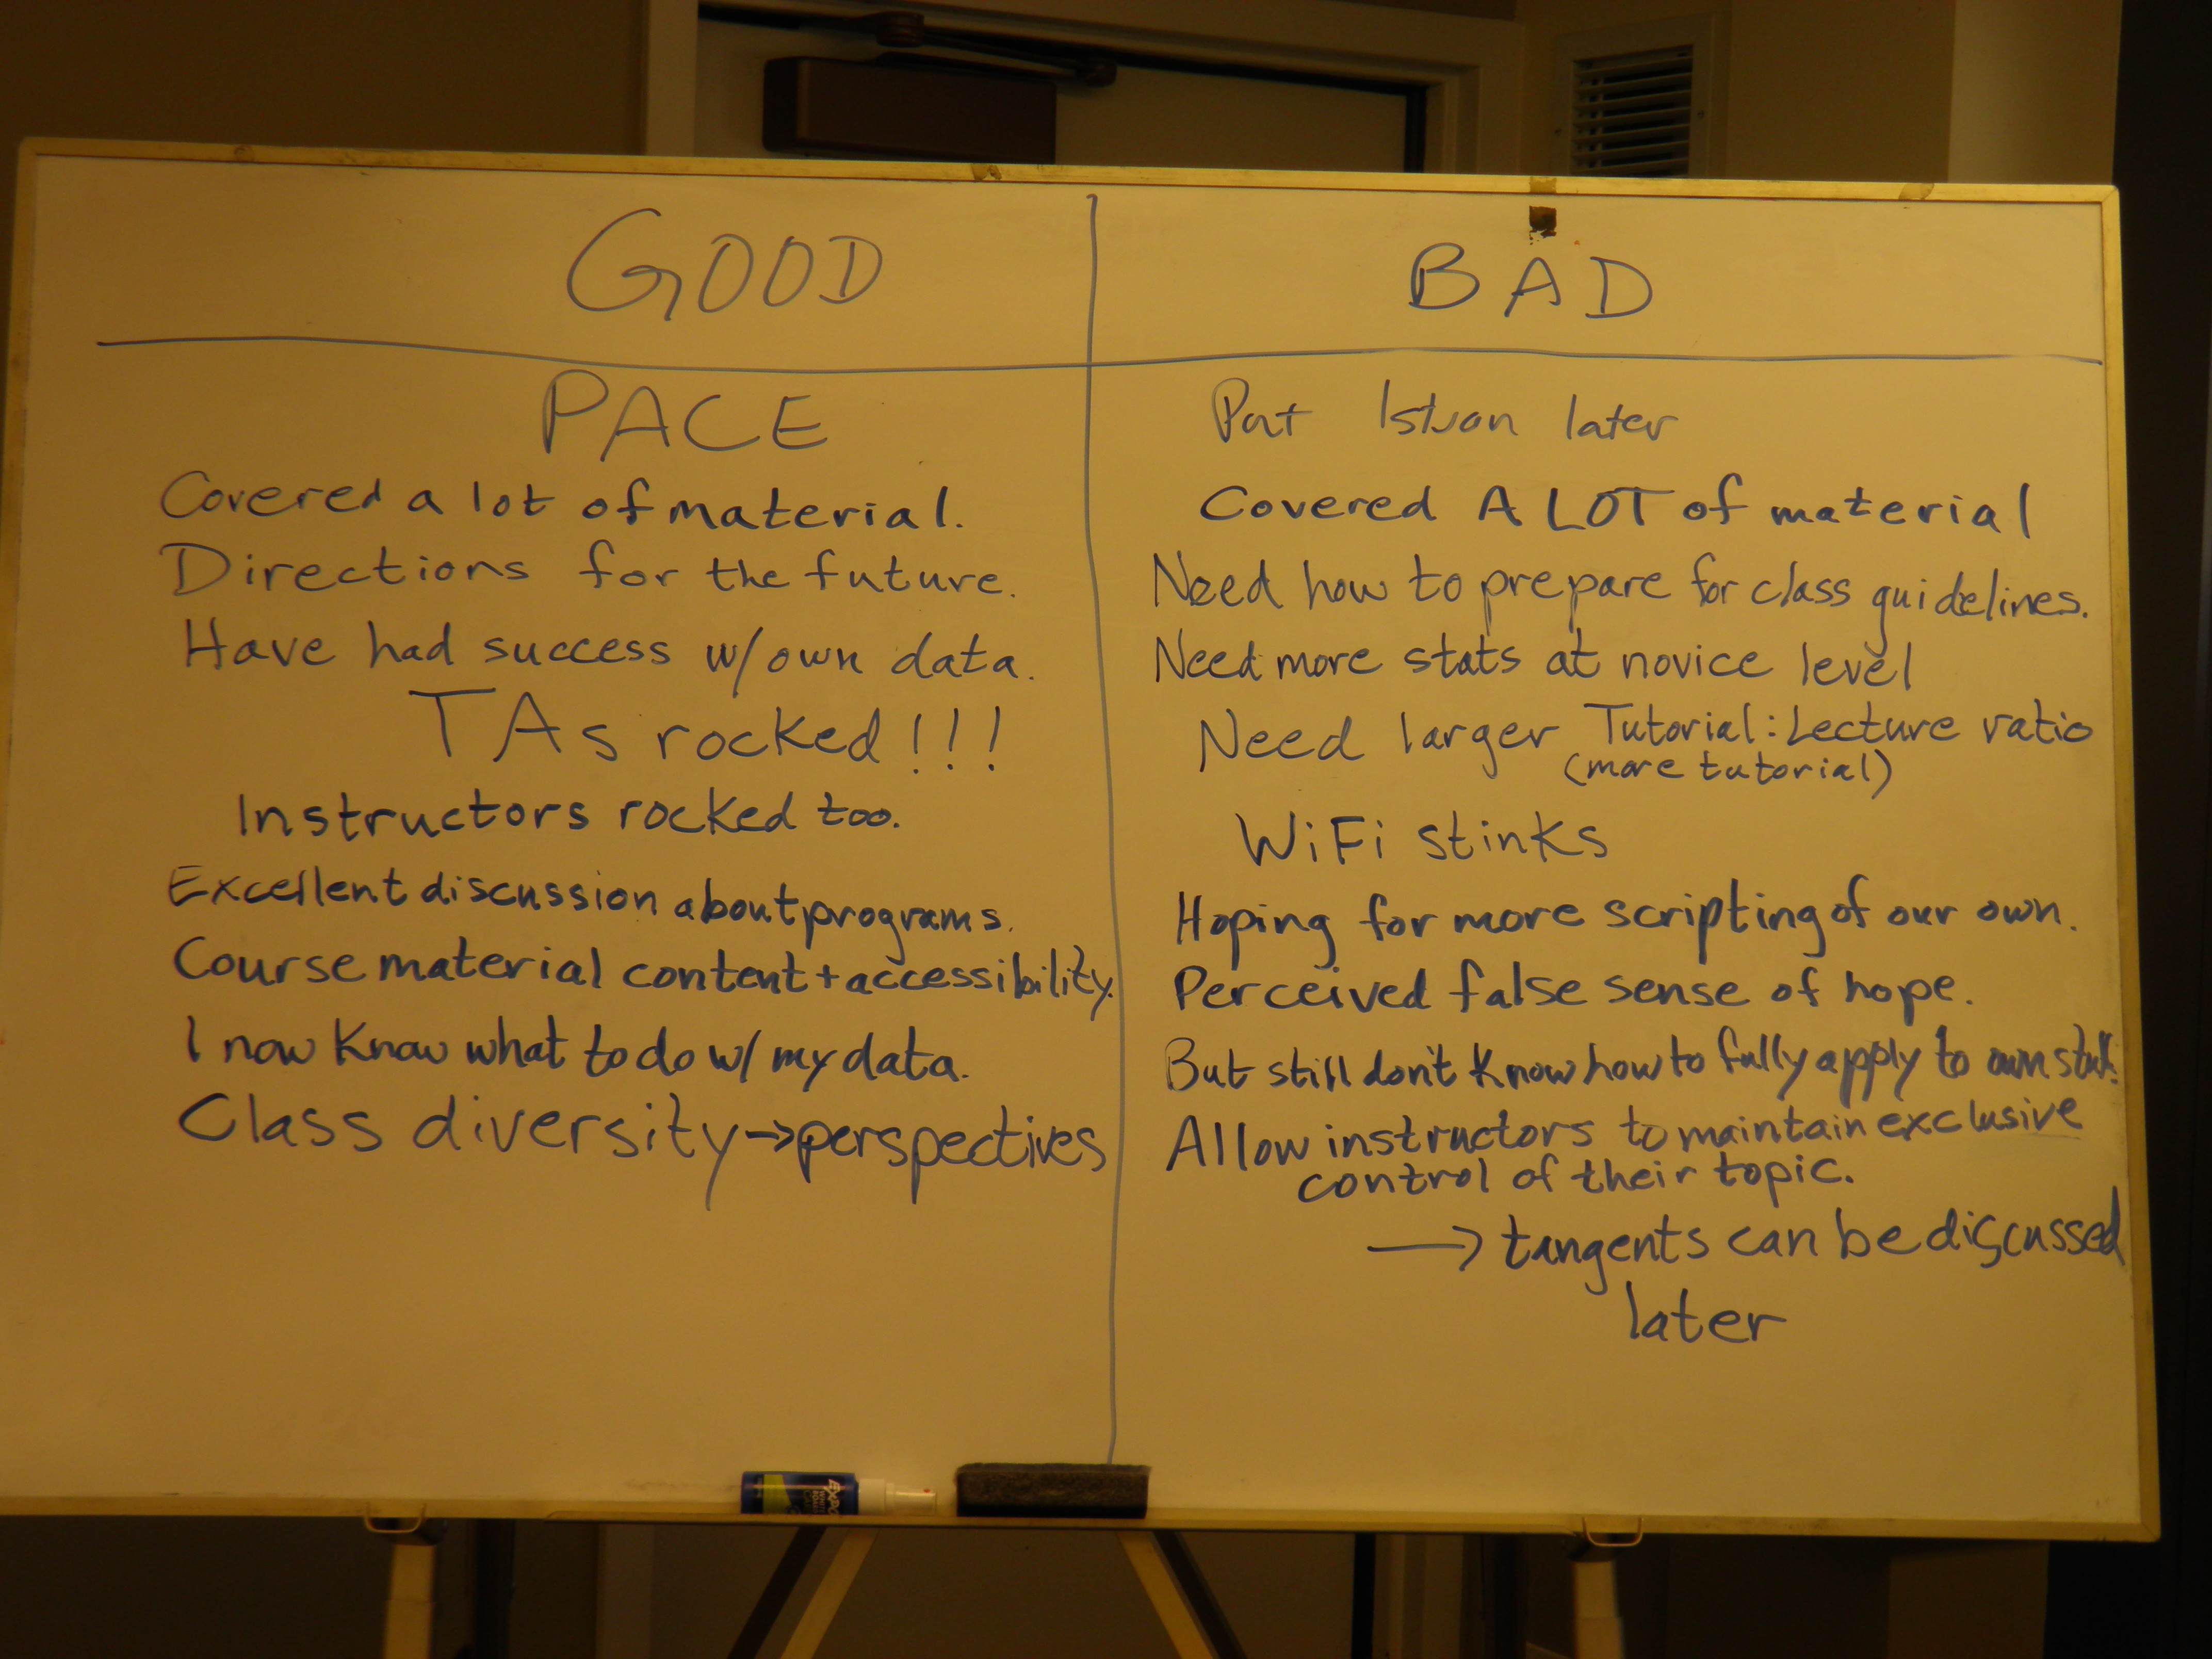 GOOD
PACE
Covered a lot of material.
Directions for the future.
Have had success w/ own data.
TAs rocked!!!
Instructors rocked too.
Excellent discussion about programs.
Course material content + accessibility.
I now know what to do w/ my data.
Class diversity → perspectives
BAD
Put Istvan later
Covered A LOT of material
Need how to prepare for class guidelines.
Need more stats at novice level
Need larger Tutorial : Lecture ratio
(more tutorial)
WiFi stinks
Hoping for more scripting of our own.
Perceived false sense of hope.
But still don't know how to fully apply to own stuff.
Allow instructors to maintain exclusive
control of their topic.
→ tangents can be discussed
later
EXPO